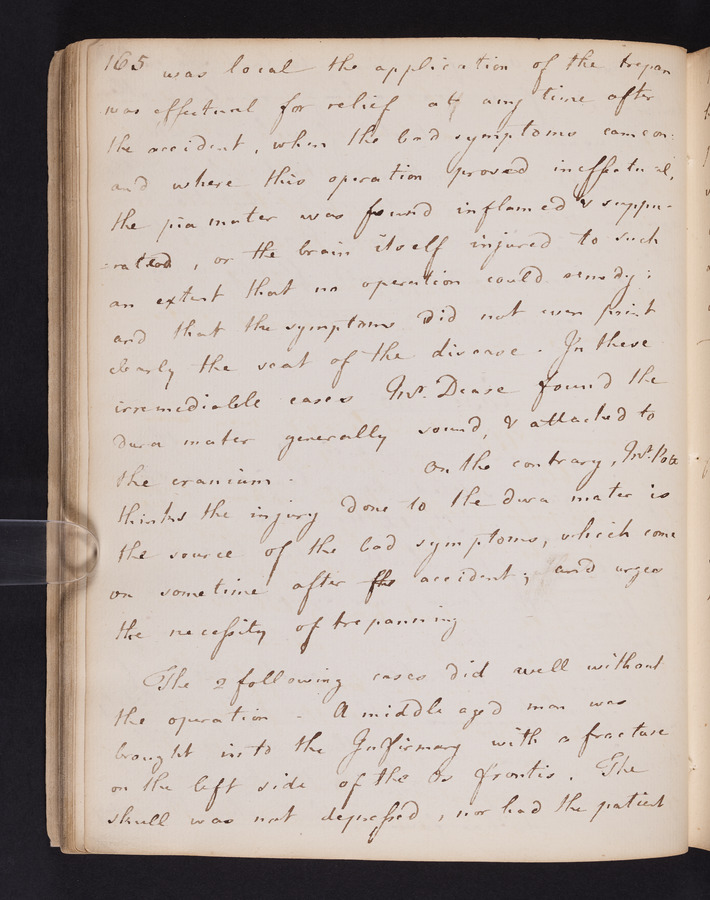 165 was local the application of the trepan
was effectual for relief at any time after
the accident, when the bad symptoms came on:
and where this operation proved ineffectual,
the pia mater was found inflamed & suppu-
=rated, or the brain itself injured to such
an extent that no operation could remedy;
and that the symptoms did not even point
clearly the seat of the disease. In these
irremediable cases Mr. Dease found the
dura mater generally sound, & attached to
the cranium. On the contrary, Mr. Pott
thinks the injury done to the dura mater is
the source of the bad symptoms, which come
on sometime after the accident; and urges
the necessity of trepanning
The 2 following cases did well without
the operation. A middle aged man was
brought into the Infirmary with a fracture
on the left side of the Os frontis. The
skull was not depressed, nor had the patient